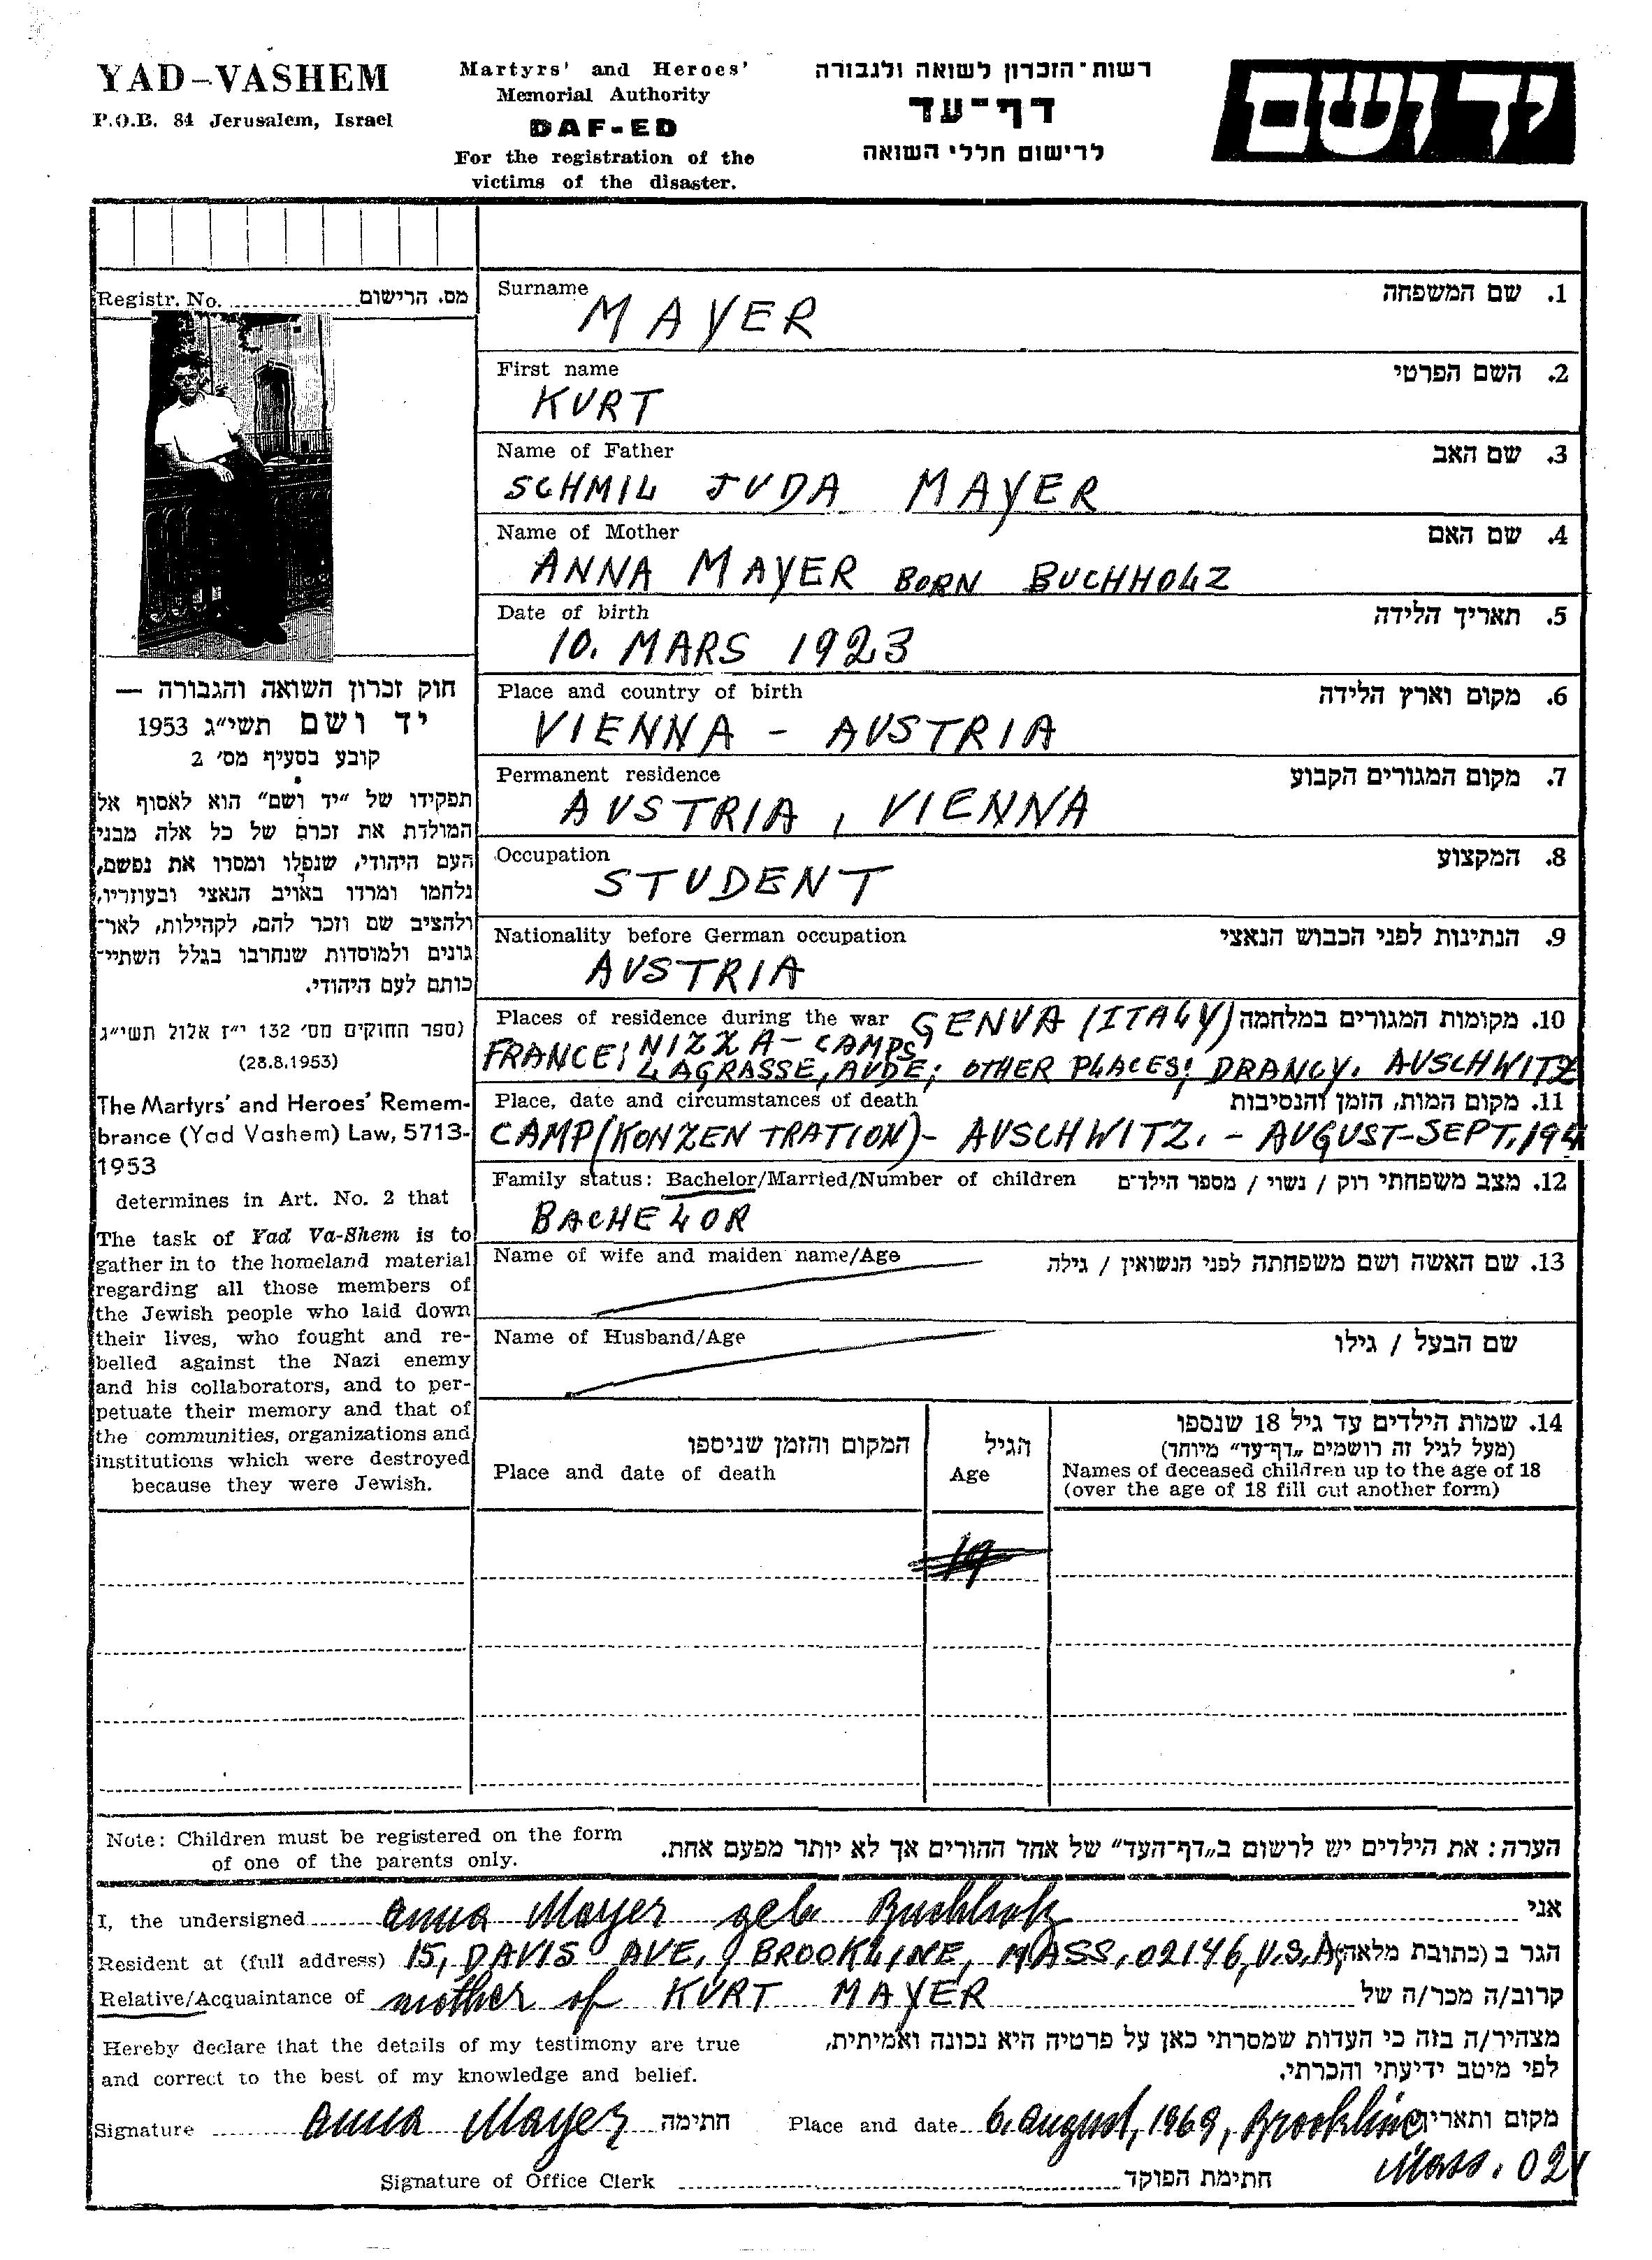 YAD-VASHEM
P.O.B. 84 Jerusalem, Israel
Martyrs' and Heroes'
Memorial Authority
DAF-ED
For the registration of the
victims of the disaster.
רשות־הזכרון לשואה ולגבורה
דף־עד
לרישום חללי השואה
יד ושם
Registr. No. מס. הרישום
חוק זכרון השואה והגבורה —
יד ושם תשי״ג 1953
קובע בסעיף מס׳ 2
תפקידו של ״יד ושם״ הוא לאסוף אל
המולדת את זכרם של כל אלה מבני
העם היהודי, שנפלו ומסרו את נפשם,
נלחמו ומרדו באויב הנאצי ובעוזריו,
ולהציב שם וזכר להם, לקהילות, לאר־
גונים ולמוסדות שנחרבו בגלל השתיי־
כותם לעם היהודי.
(ספר החוקים מס׳ 132 י״ז אלול תשי״ג
(28.8.1953)
The Martyrs' and Heroes' Remem-
brance (Yad Vashem) Law, 5713-
1953
determines in Art. No. 2 that
The task of Yad Va-Shem is to
gather in to the homeland material
regarding all those members of
the Jewish people who laid down
their lives, who fought and re-
belled against the Nazi enemy
and his collaborators, and to per-
petuate their memory and that of
the communities, organizations and
institutions which were destroyed
because they were Jewish.
Surname 1. שם המשפחה
MAYER
First name 2. השם הפרטי
KURT
Name of Father 3. שם האב
SCHMIL JUDA MAYER
Name of Mother 4. שם האם
ANNA MAYER BORN BUCHHOLZ
Date of birth 5. תאריך הלידה
10. MARS 1923
Place and country of birth 6. מקום וארץ הלידה
VIENNA - AUSTRIA
Permanent residence 7. מקום המגורים הקבוע
AUSTRIA, VIENNA
Occupation 8. המקצוע
STUDENT
Nationality before German occupation 9. הנתינות לפני הכבוש הנאצי
AUSTRIA
Places of residence during the war GENUA (ITALY) 10. מקומות המגורים במלחמה
FRANCE: NIZZA - CAMPS
LAGRASSE, AUDE; OTHER PLACES: DRANCY. AUSCHWITZ
Place, date and circumstances of death 11. מקום המות, הזמן והנסיבות
CAMP (KONZENTRATION) - AUSCHWITZ. - AUGUST-SEPT. 194
Family status: Bachelor/Married/Number of children 12. מצב משפחתי רוק / נשוי / מספר הילדים
BACHELOR
Name of wife and maiden name/Age 13. שם האשה ושם משפחתה לפני הנשואין / גילה
Name of Husband/Age שם הבעל / גילו
המקום והזמן שניספו
Place and date of death
הגיל
Age
14. שמות הילדים עד גיל 18 שנספו
(מעל לגיל זה רושמים „דף־עד״ מיוחד)
Names of deceased children up to the age of 18
(over the age of 18 fill out another form)
19
Note: Children must be registered on the form
of one of the parents only.
הערה: את הילדים יש לרשום ב„דף־העד״ של אחד ההורים אך לא יותר מפעם אחת.
I, the undersigned Anna Mayer geb. Buchholz אני
Resident at (full address) 15, DAVIS AVE, BROOKLINE, MASS. 02146, U.S.A. הגר ב (כתובת מלאה)
Relative/Acquaintance of mother of KURT MAYER קרוב/ה מכר/ה של
Hereby declare that the details of my testimony are true
and correct to the best of my knowledge and belief.
מצהיר/ה בזה כי העדות שמסרתי כאן על פרטיה היא נכונה ואמיתית,
לפי מיטב ידיעתי והכרתי.
Signature Anna Mayer חתימה Place and date 6. August, 1969, Brookline מקום ותאריך
Mass. 021
Signature of Office Clerk חתימת הפוקד